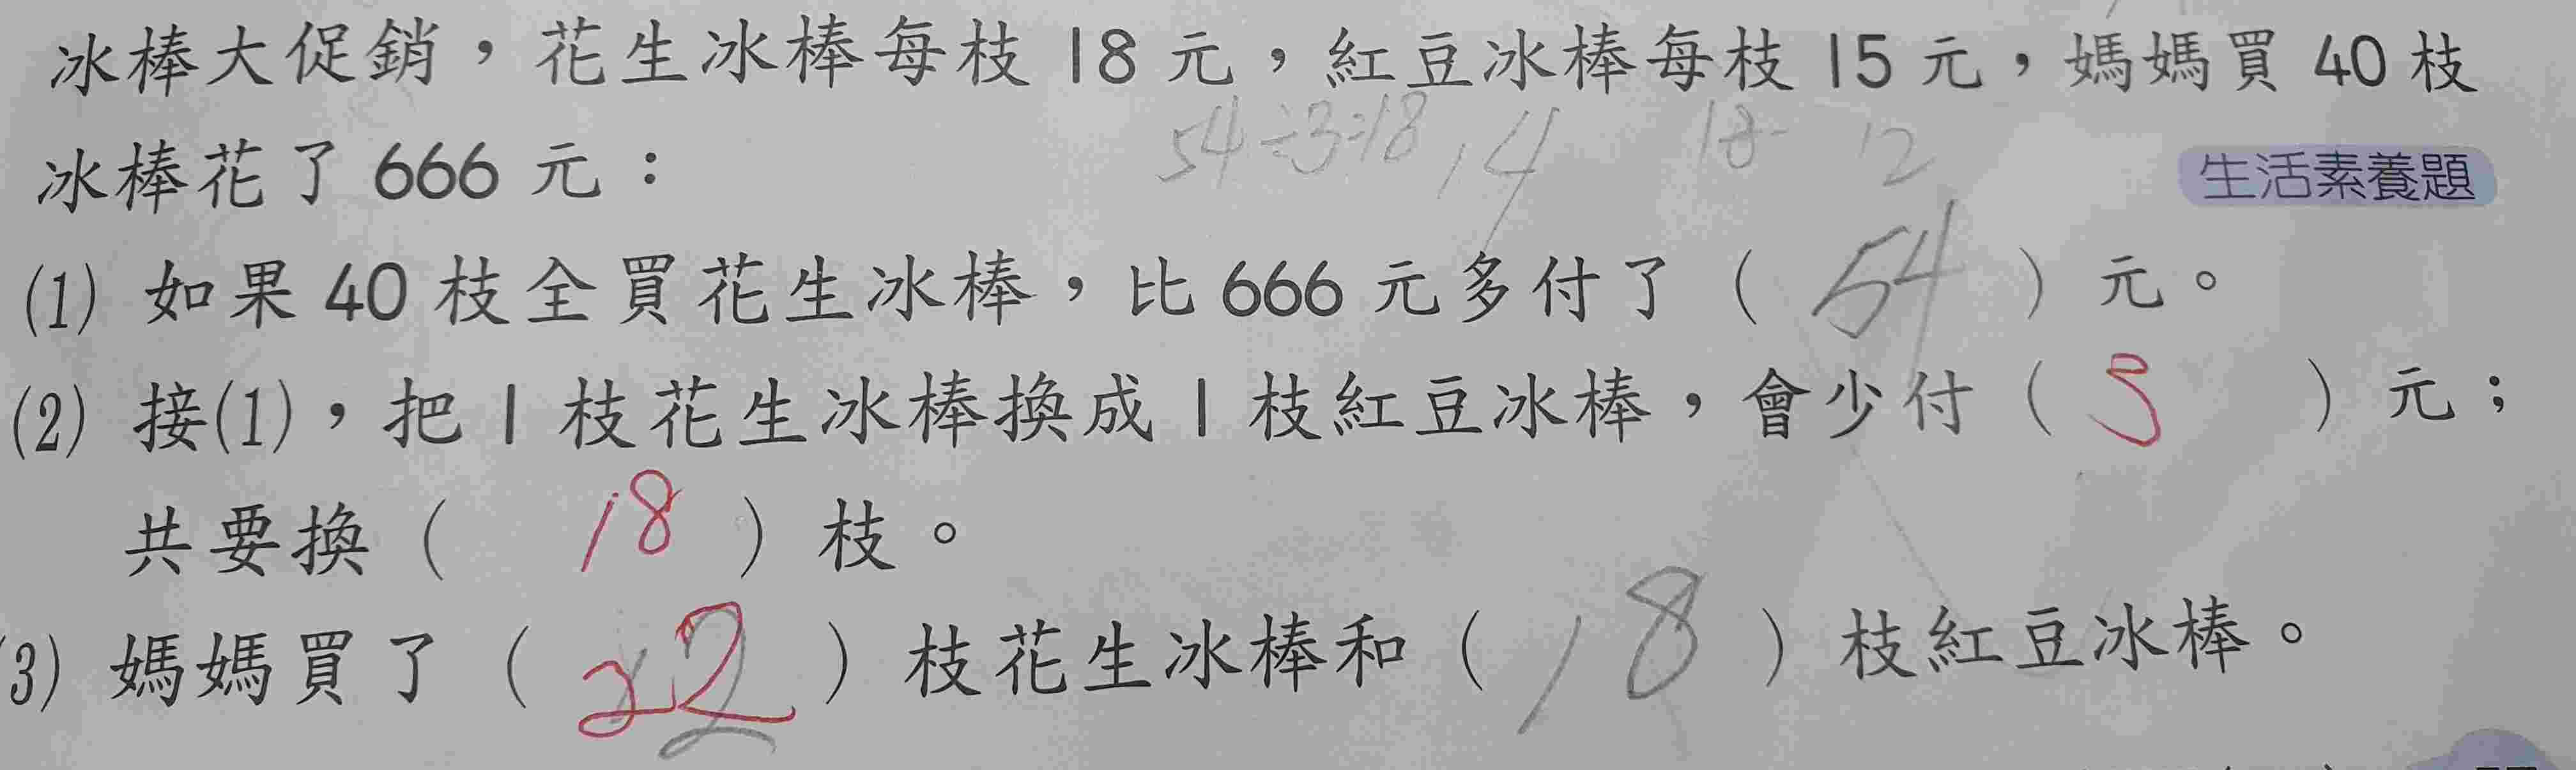 冰棒大促銷，花生冰棒每枝18元，紅豆冰棒每枝15元，媽媽買40枝
54÷3=18 14 18- 12
冰棒花了666元：
生活素養題
(1) 如果40枝全買花生冰棒，比666元多付了（ 54 ）元。
(2) 接(1)，把1枝花生冰棒換成1枝紅豆冰棒，會少付（ 3 ）元；
共要換（ 18 ）枝。
3) 媽媽買了（ 22 ）枝花生冰棒和（ 18 ）枝紅豆冰棒。